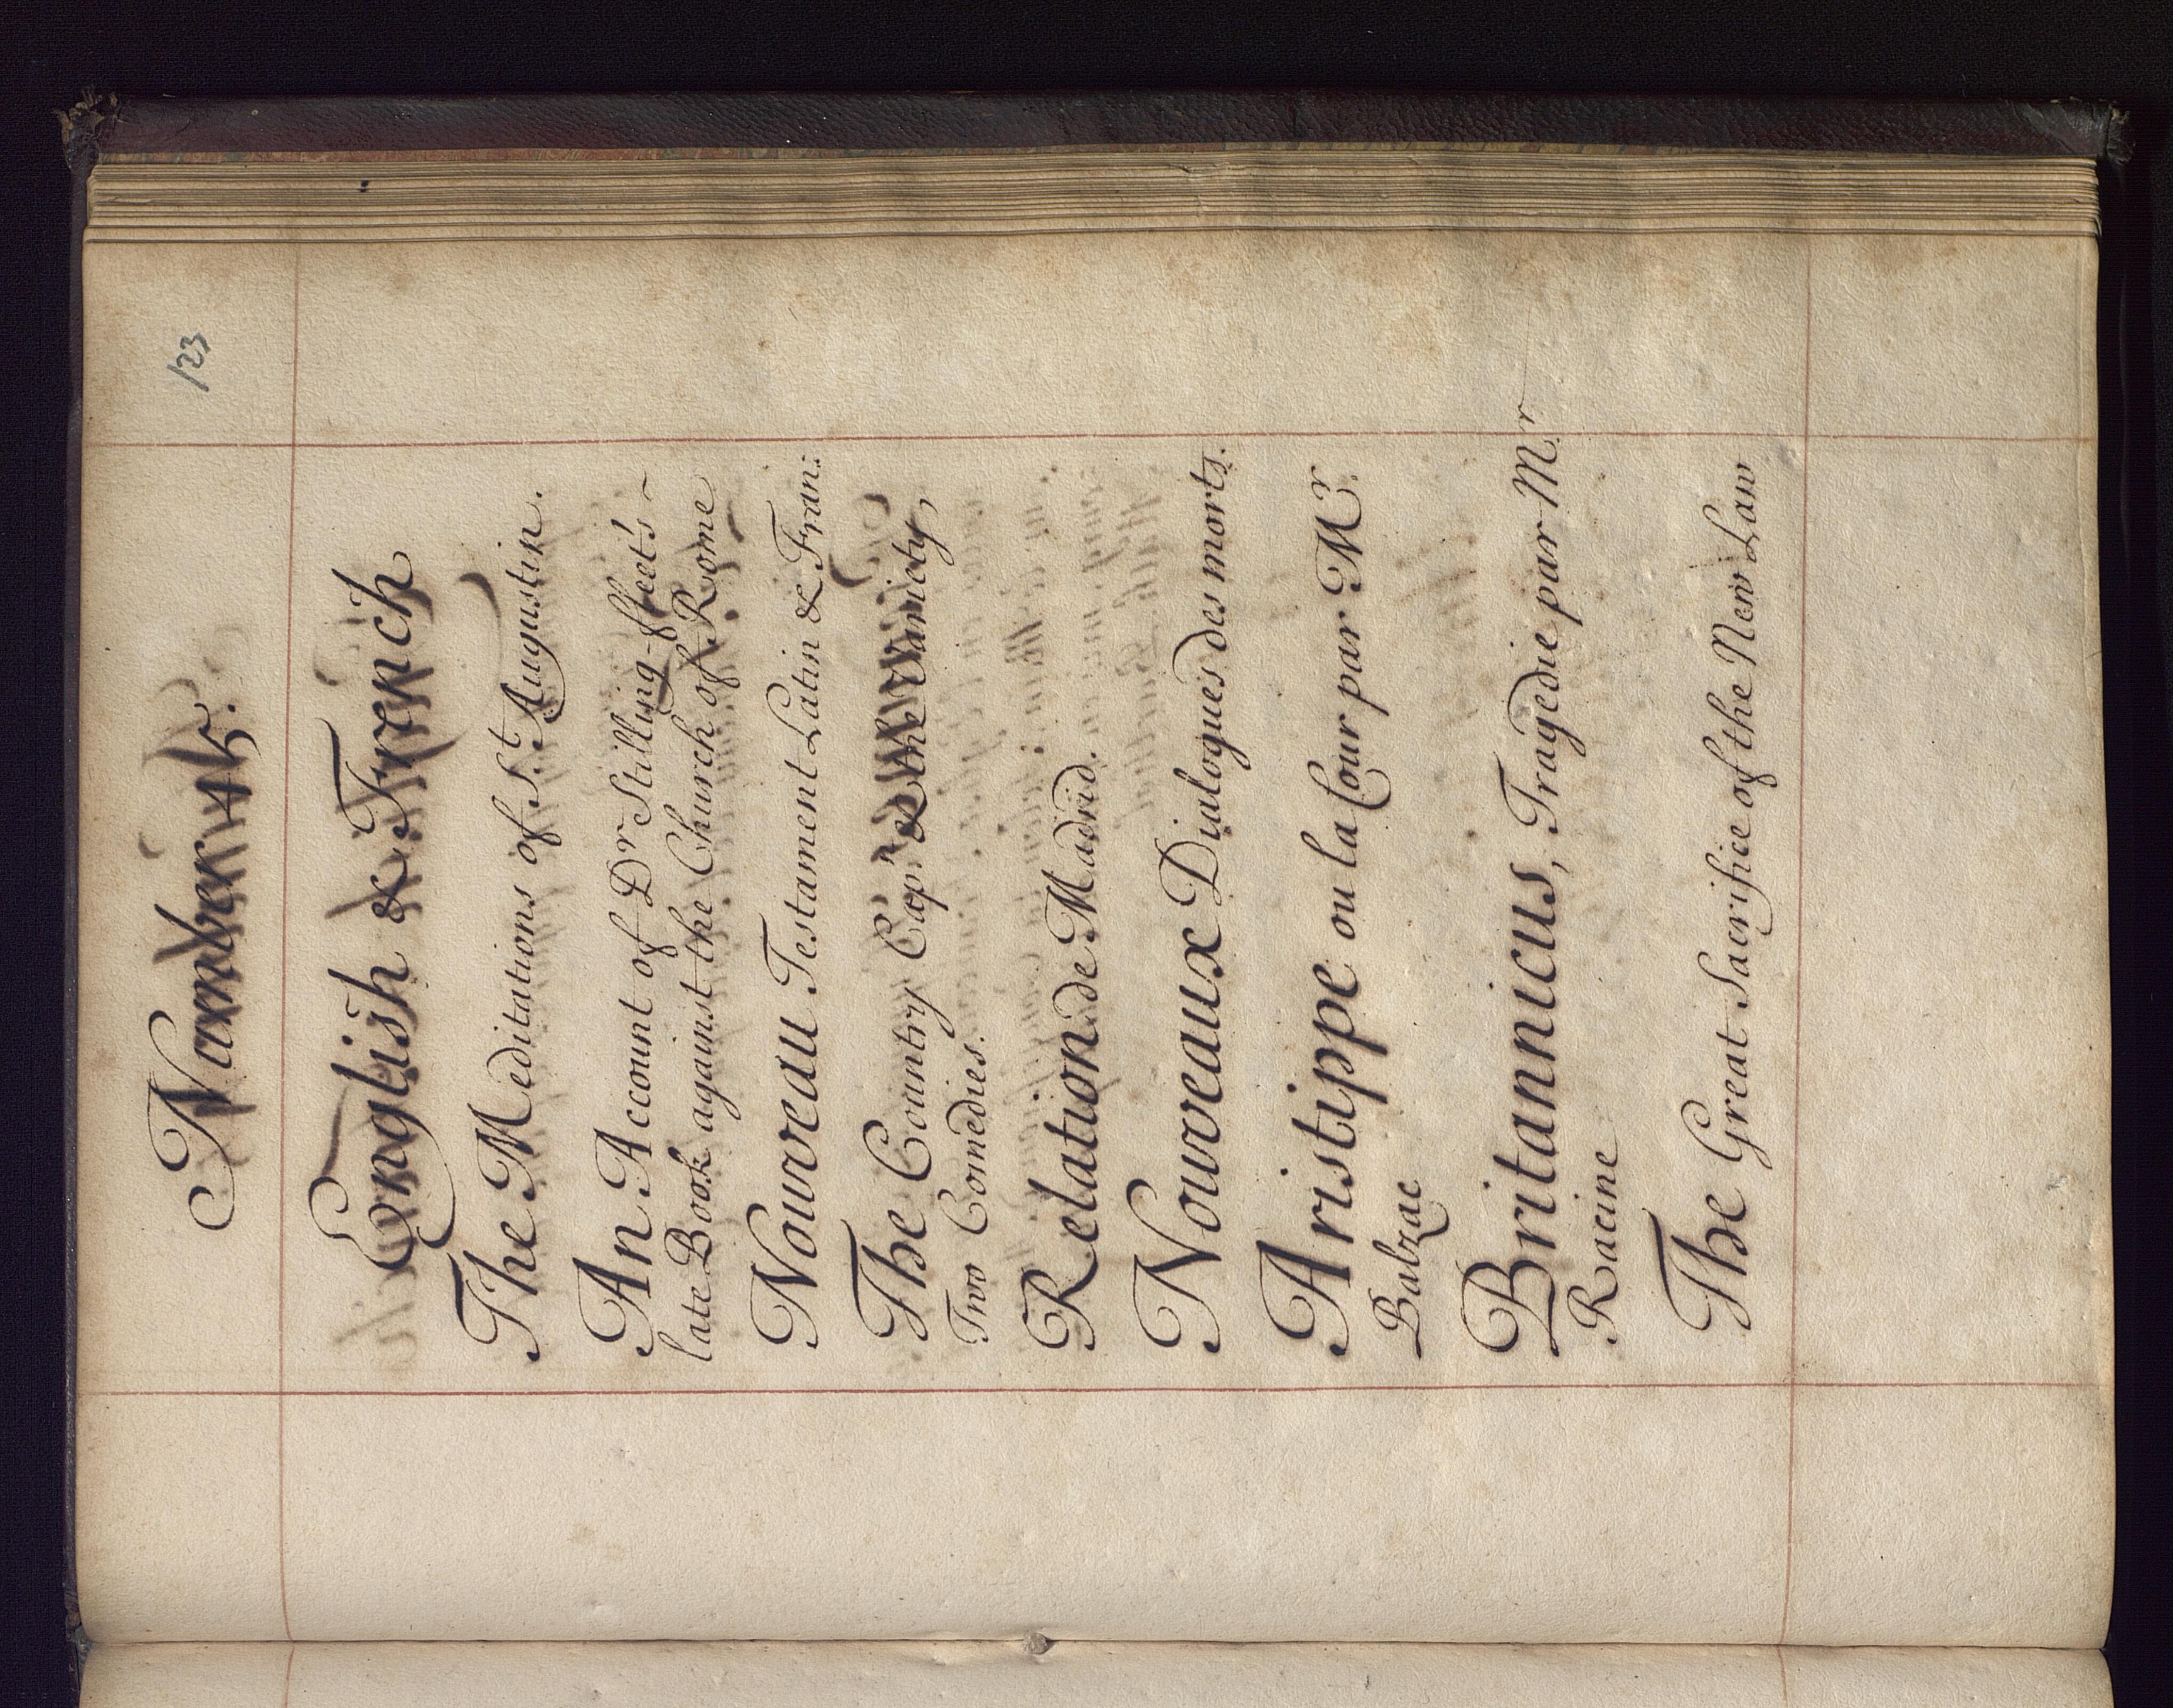 123
Number 45.
English & French
The Meditations of S.t Augustin.
An Account of Dr Stilling-fleet's
late Book against the Church of Rome
Nouveau Testament Latin & Fran:
The Country Cap.n & the Variety,
Two Comedies.
Relation de Madrid.
Nouveaux Dialogues des morts.
Aristippe ou la Cour par Mr.
Balzac
Britannicus, Tragedie par M.r
Racine
The Great Sacrifice of the New Law